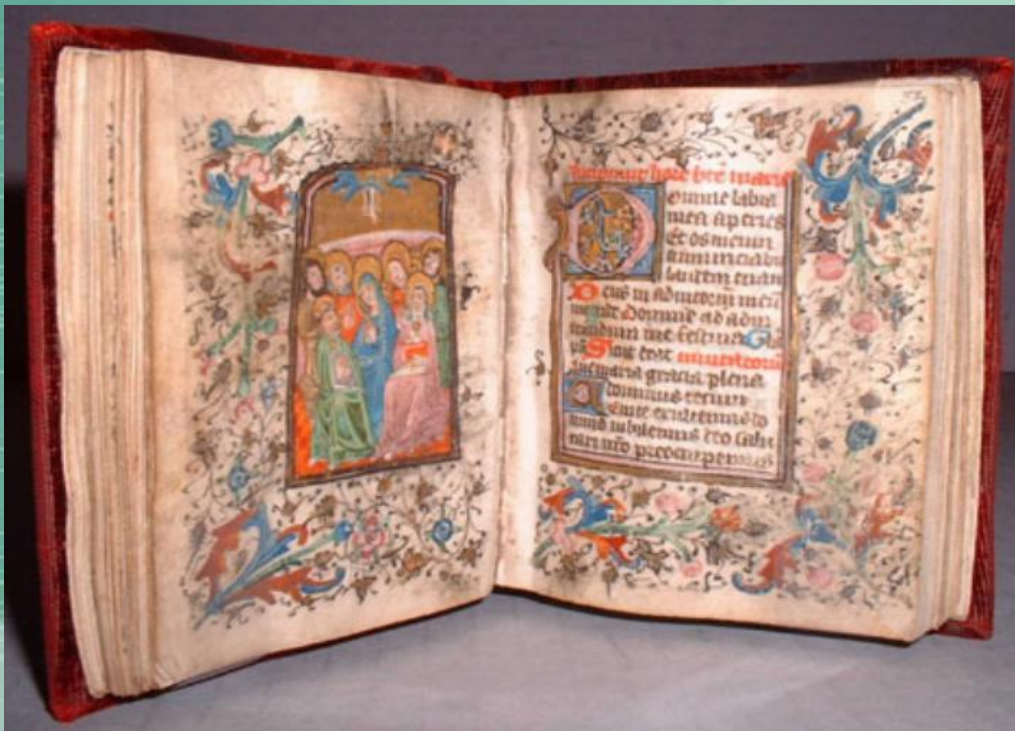 hore bte marie
Domine labia
mea aperies
Et os meum
annunciabit
laudem tuam
Deus in adiutorium meu
intende Domine ad adiu
uandum me festina Gla
pri Sicut erat
Aue maria gracia plena
dominus tecum
Uenite exultemus do
mino iubilemus deo salu
tari nro preocupemus